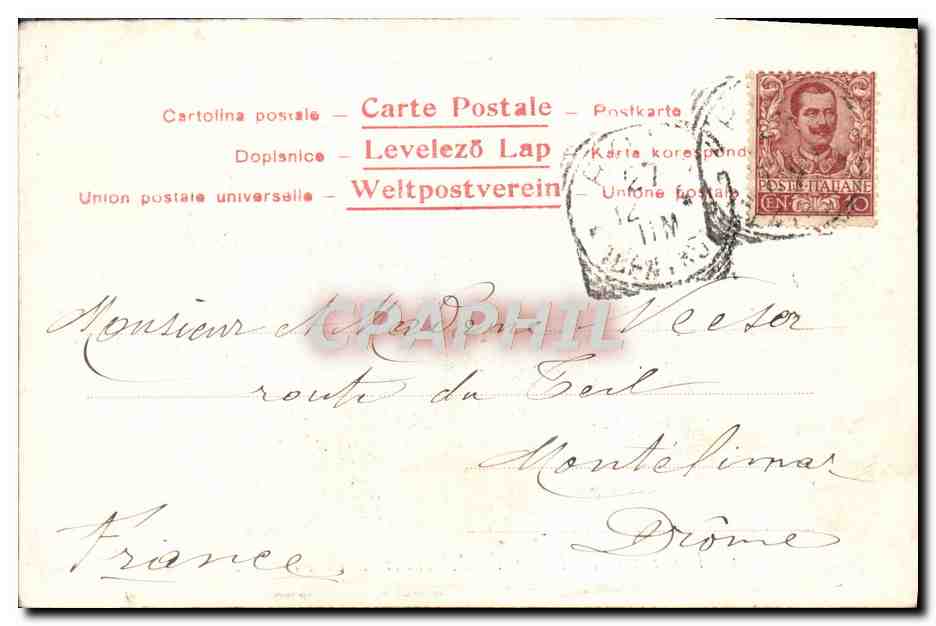 Cartolina postale – Carte Postale – Postkarte
Dopisnice – Levelező Lap – Karta korespond
Union postale universelle – Weltpostverein – Unione postale
POSTE ITALIANE
CEN 10
27
12
11M
CPAPHIL
Monsieur et Madame
route du Teil
Montélimar
Drôme
France